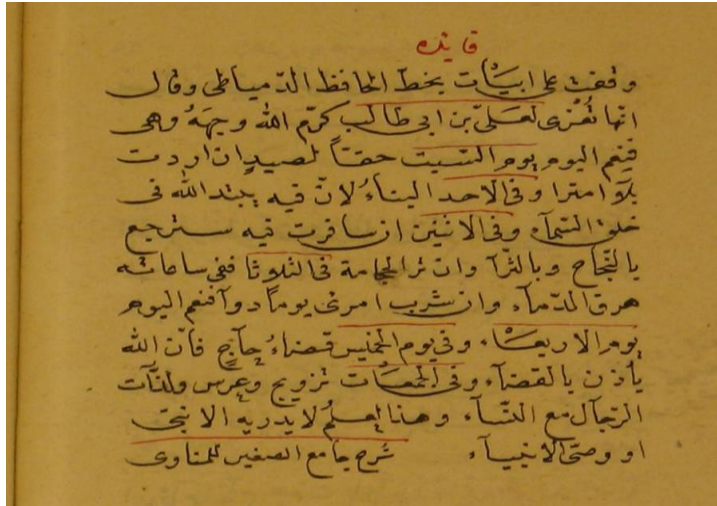 فائده
وقفت على ابيات بخط الحافظ الدمياطى وقال
انها تعزى لعلى بن ابى طالب كرم الله وجهه وهى
فنعم اليوم يوم السبت حقاً لصيد ان اردت
بلا امترا وفى الاحد البناء لان فيه يبتد الله فى
خلق السماء وفى الاثنين ان سافرت فيه سترجع
بالنجاح وبالثرآ وان تر الحجامة فى الثلوثا ففى ساعاته
هرق الدمآء وان شرب امرئ يوماً دوآ فنعم اليوم
يوم الاربعاء وفى يوم الخميس قضاء حآج فان الله
يأذن بالقضآء وفى الجمعات تزويج وعرس ولذآت
الرجآل مع النسآء وهذا لعلم لا يدريه الا نبى
او وصى الانبيآء شرح جامع الصغير للمناوى